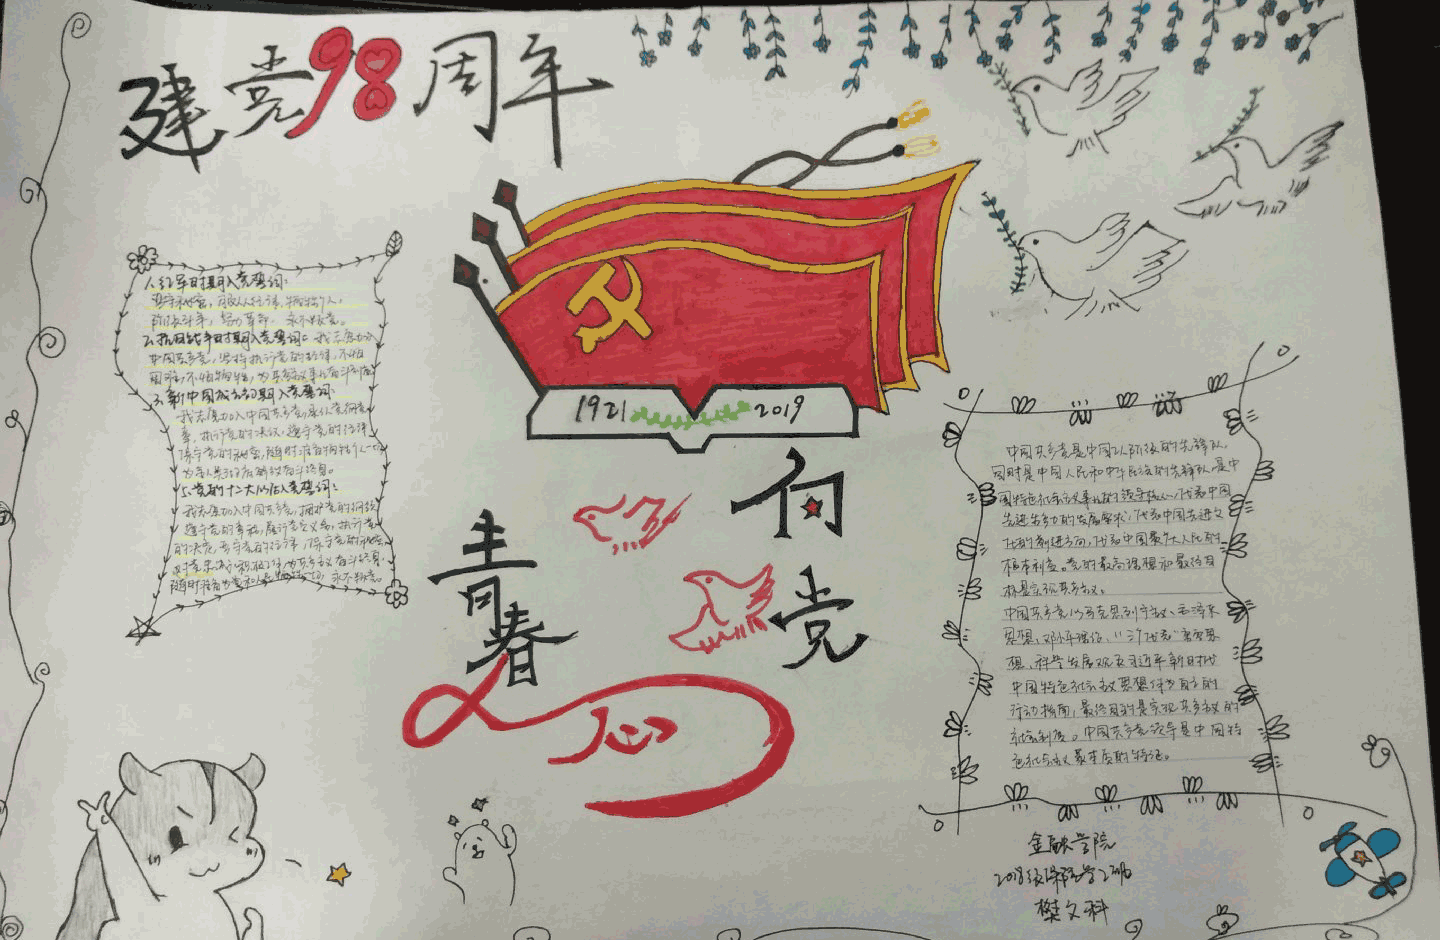 建党98周年
1.红军时期入党誓词:
严守秘密,服从纪律,牺牲个人,
阶级斗争,努力革命,永不叛党。
2.抗日战争时期入党誓词:我志愿加入
中国共产党,坚持执行党的纪律,不怕
困难,不怕牺牲,为共产主义事业奋斗到底
3.新中国成立初期入党誓词:
我志愿加入中国共产党,承认党纲党
章,执行党的决议,遵守党的纪律
保守党的秘密,随时准备牺牲个人一切
为全人类彻底解放奋斗终身。
5.党的十二大以后入党誓词:
我志愿加入中国共产党,拥护党的纲领
遵守党的章程,履行党员义务,执行党
的决定,严守党的纪律,保守党的秘密
对党忠诚,积极工作,为共产主义奋斗终身
随时准备为党和人民牺牲一切,永不叛党。
1921 2019
青春
心
向
党
中国共产党是中国工人阶级的先锋队,
同时是中国人民和中华民族的先锋队,是中
国特色社会主义事业的领导核心,代表中国
先进生产力的发展要求,代表中国先进文
化的前进方向,代表中国最广大人民的
根本利益。党的最高理想和最终目
标是实现共产主义。
中国共产党以马克思列宁主义、毛泽东
思想、邓小平理论、“三个代表”重要思
想、科学发展观、习近平新时代
中国特色社会主义思想作为自己的
行动指南,最终目的是实现共产主义的
社会制度。中国共产党领导是中国特
色社会主义最本质的特征。
金融学院
2018级保险学2班
樊文科